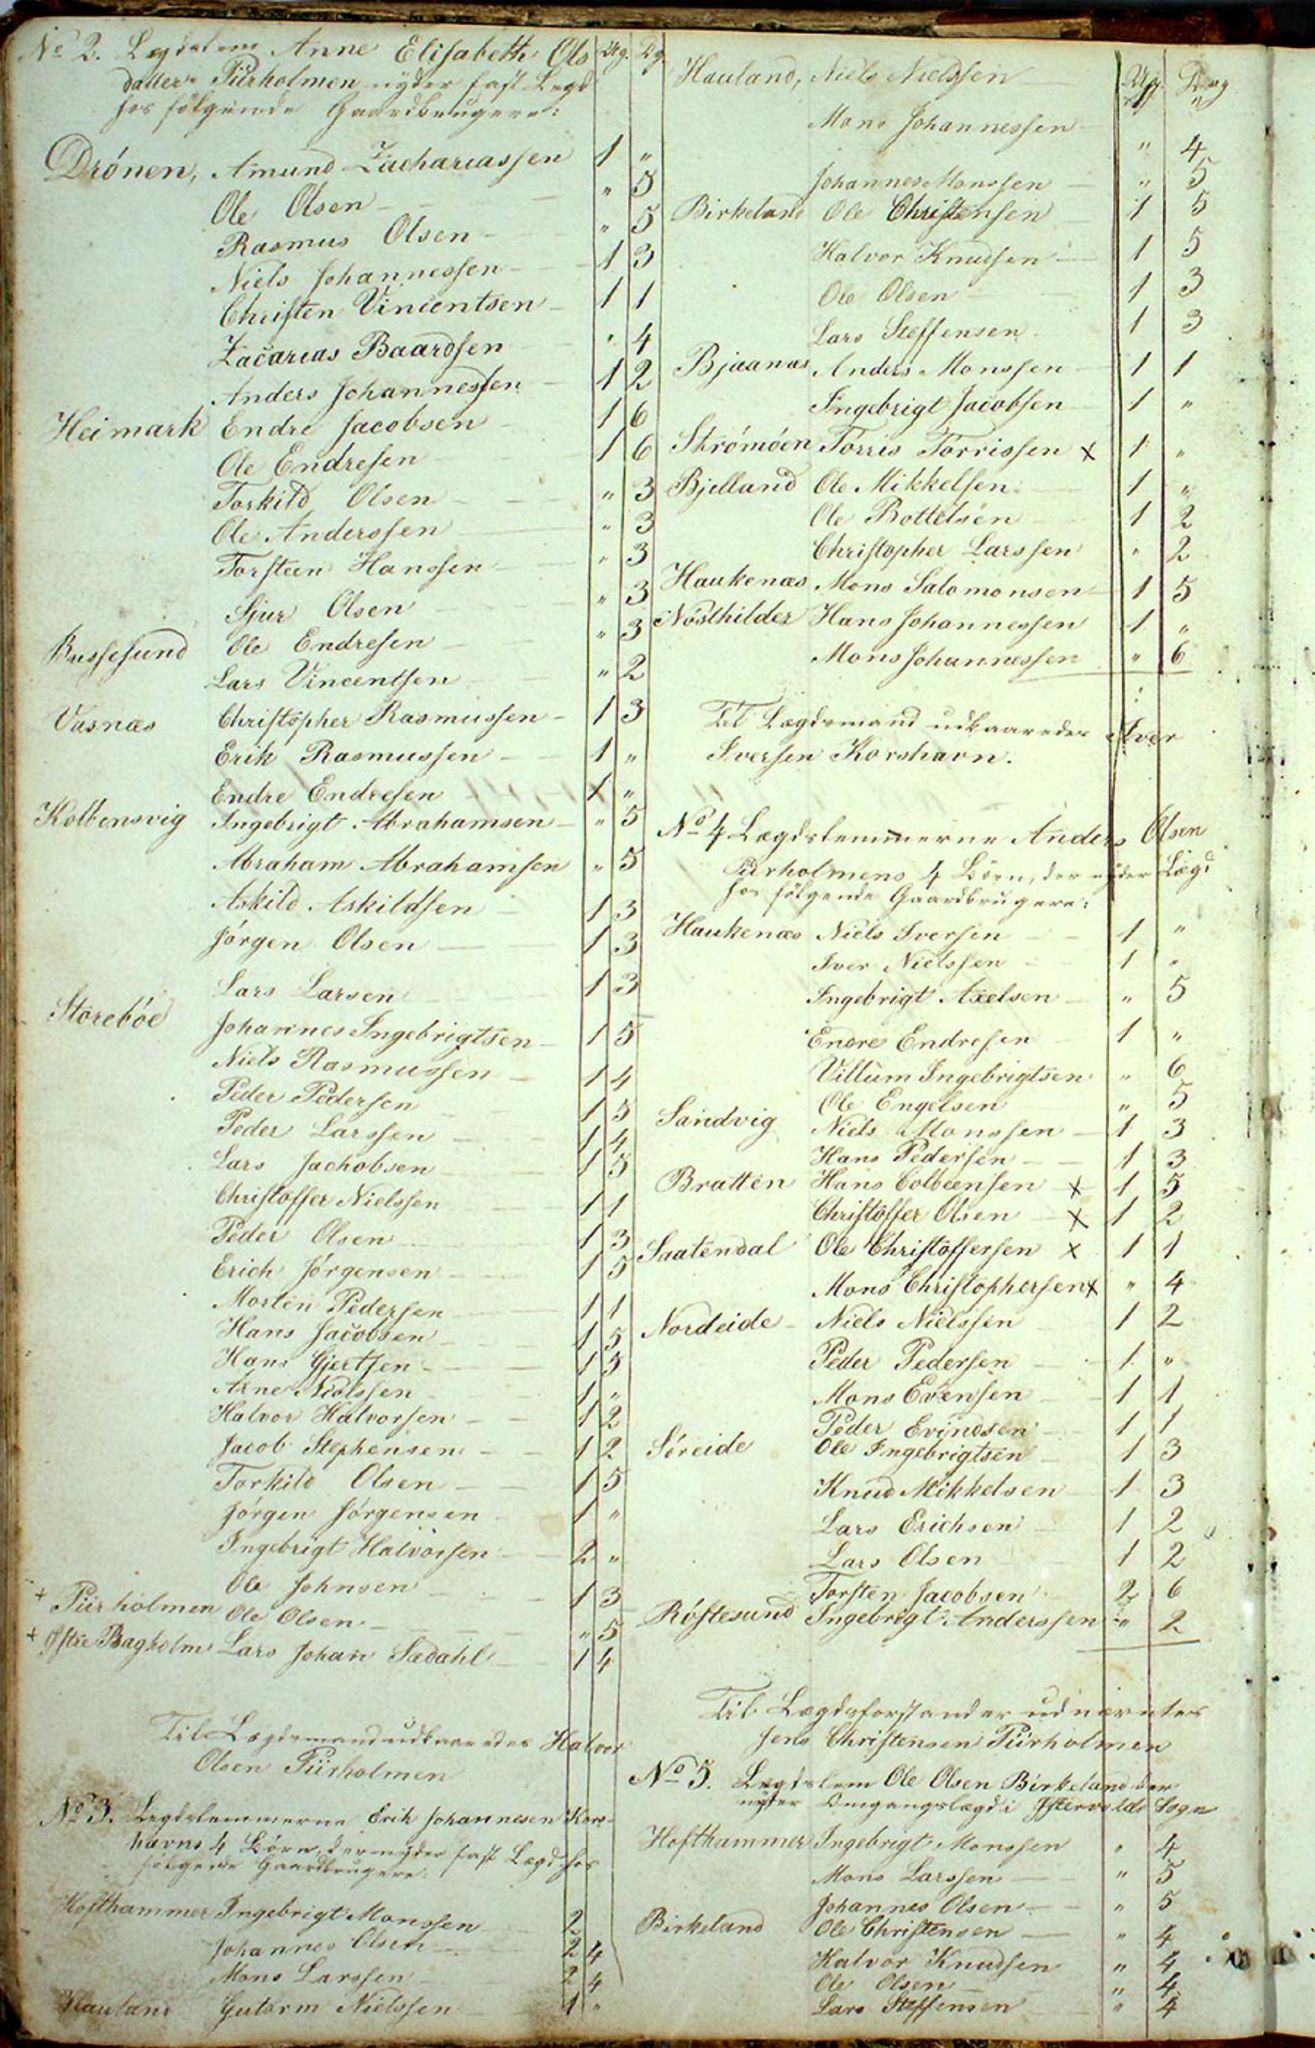 No 2. Lægdslem Anne Elisabeth Ols Ug. Dg.
datter Piirholmen nyder fast Lægd
hos følgende Gaardbrugere:
Drönen, Amund Zachariassen 1 "
Ole Olsen " 5
Rasmus Olsen " 5
Niels Johannessen 1 3
Christen Vincentsen 1 1
Zacarias Baardsen " 4
Anders Johannessen 1 2
Heimark Endre Jacobsen 1 6
Ole Endresen 1 6
Torkild Olsen " 3
Ole Anderssen " 3
Torsteen Hanssen " 3
Sjur Olsen " 3
Bussesund Ole Endresen " 3
Lars Vincentsen " 2
Vasnæs Christopher Rasmussen 1 3
Erik Rasmussen 1 "
Endre Endresen 1 "
Kolbensvig Ingebrigt Abrahamsen " 5
Abraham Abrahamsen " 5
Askild Askildsen 1 3
Jörgen Olsen 1 3
Lars Larsen 1 3
Storeböe Johannes Ingebrigtsen 1 5
Niels Rasmussen 1 4
Peder Pedersen 1 5
Peder Larssen 1 4
Lars Jachobsen 1 5
Christoffer Nielssen 1 1
Peder Olsen 1 3
Erich Jörgensen 1 5
Morten Pedersen 1 1
Hans Jacobsen 1 5
Hans Gjertsen 1 5
Arne Nielssen 1 "
Halvor Halvorsen 1 2
Jacob Stephensen 1 2
Torkild Olsen 1 5
Jörgen Jörgensen 1 "
Ingebrigt Halvorsen 2 "
Ole Johnsen 1 3
+ Piirholmen Ole Olsen " 5
+ Østre Bagholm Lars Johan Sædahl 1 4
Til Lægdsmand udkaaredes Halvor
Olsen Piirholmen
No 3. Lægdslemmerne Erik Johannesen Kors-
havns 4 Börn, der nyder fast Lægd hos
følgende Gaardbrugere:
Hofthammer Ingebrigt Monssen 2
Johannes Olsen 2 4
Mons Larssen 2 4
Hauland Gutorm Nielssen 1 "
Hauland, Niels Nielssen Ug. Dag
Mons Johannessen " 4
Johannes Monssen " 5
Birkeland Ole Christensen 1 5
Halvor Knudsen 1 5
Ole Olsen 1 3
Lars Steffensen 1 3
Bjaanæs Anders Monssen 1 1
Ingebrigt Jacobsen 1 "
Strömöen Torris Torrissen x 1 "
Bjelland Ole Mikkelsen 1 "
Ole Bottelsen 1 2
Christopher Larssen " 2
Haukenæs Mons Salomonsen 1 5
Nösthilder Hans Johannessen 1 "
Mons Johannessen " 6
Til Lægdsmand udkaaredes Iver
Iversen Korshavn.
No 4 Lægdslemmerne Anders Olsen
Piirholmens 4 Börn, der nyder Lægd
hos følgende Gaardbrugere:
Haukenæs Niels Iversen 1 "
Iver Nielssen 1 "
Ingebrigt Axelsen " 5
Endre Endresen 1 "
Villum Ingebrigtsen " 6
Ole Engelsen " 5
Sandvig Niels Monssen 1 3
Hans Pedersen 1 3
Bratten Hans Colbeensen x 1 5
Christoffer Olsen x 1 2
Saatendal Ole Christoffersen x 1 1
Mons Christophersen x " 4
Nordeide Niels Nielssen 1 2
Peder Pedersen 1 "
Mons Evensen 1 1
Peder Evindsen 1 1
Söreide Ole Ingebrigtsen 1 3
Knud Mikkelsen 1 3
Lars Erichsen 1 2
Lars Olsen 1 2
Torsten Jacobsen 2 6
Röstesund Ingebrigt Anderssen " 2
Til Lægdsforstander udnævntes
Jens Christensen Piirholmen
No 5. Lægdslem Ole Olsen Birkeland der
nyder Omgangslægd i Østervolds Sogn
Hofthammer Ingebrigt Monssen " 4
Mons Larssen " 5
Johannes Olsen " 5
Birkeland Ole Christensen " 4
Halvor Knudsen " 4
Ole Olsen " 4
Lars Steffensen " 4